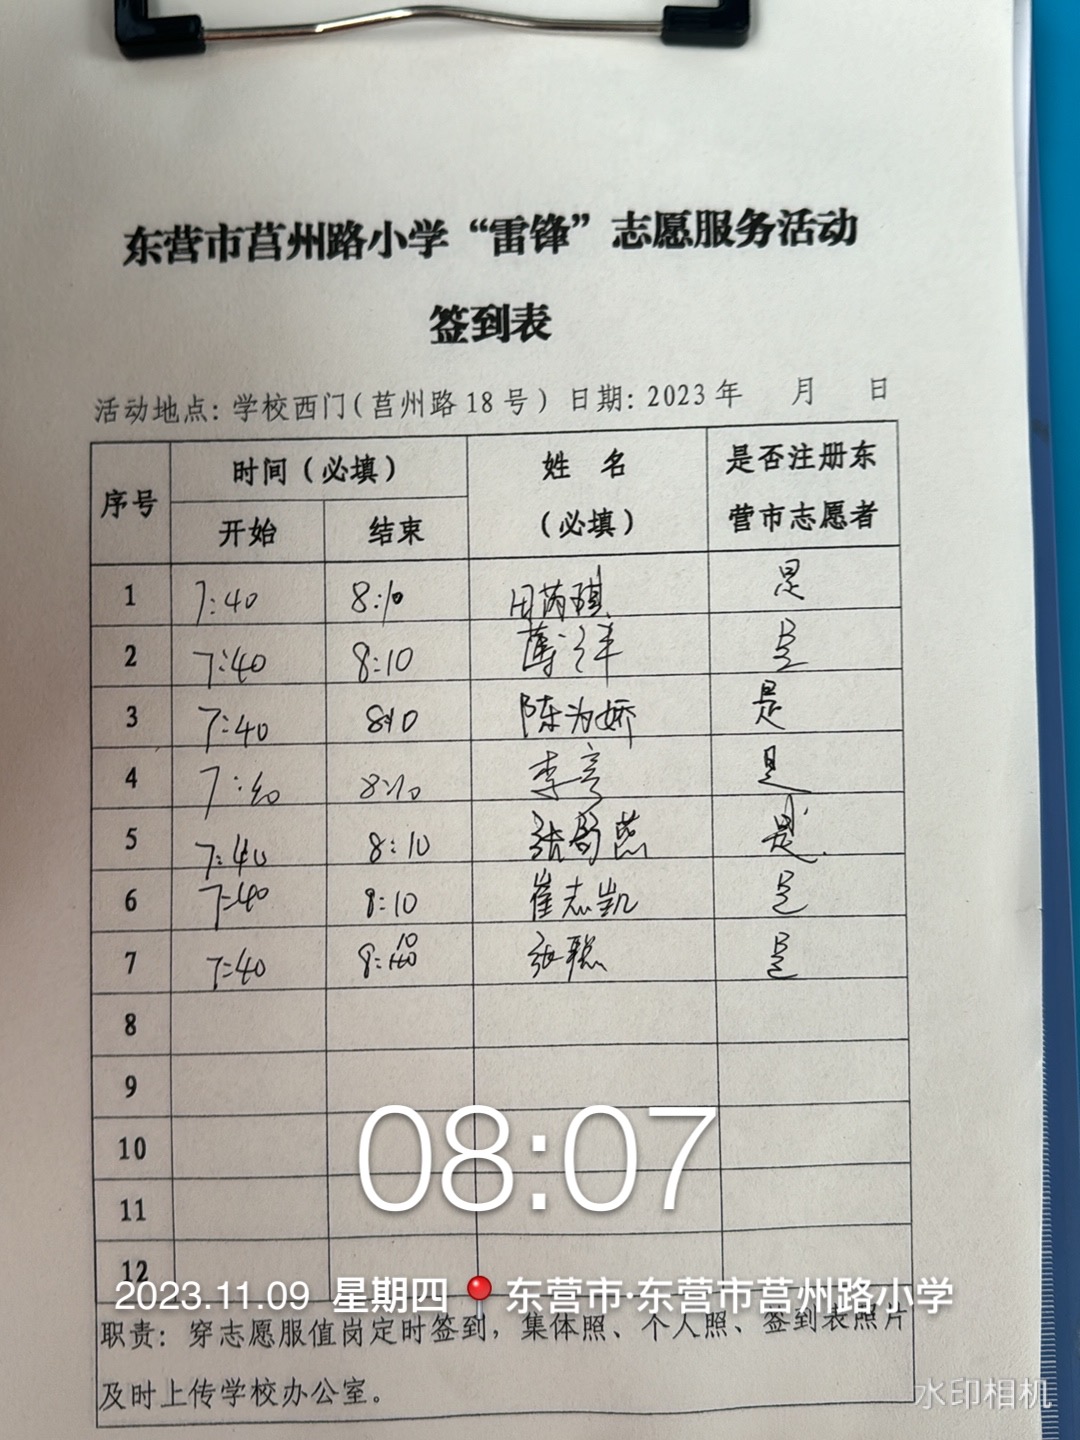 东营市莒州路小学“雷锋”志愿服务活动
签到表
活动地点: 学校西门(莒州路18号) 日期: 2023年 月 日
序号 时间(必填) 姓 名 (必填) 是否注册东营市志愿者
开始 结束
1 7:40 8:10 田芮琪 是
2 7:40 8:10 是
3 7:40 8:10 陈为娇 是
4 7:40 8:10 李 是
5 7:40 8:10 张 燕 是
6 7:40 8:10 崔志凯 是
7 7:40 8:10 张聪 是
8
9
10
11
12
08:07
2023.11.09 星期四 东营市·东营市莒州路小学
职责: 穿志愿服值岗定时签到, 集体照、个人照、签到表照片
及时上传学校办公室。
水印相机